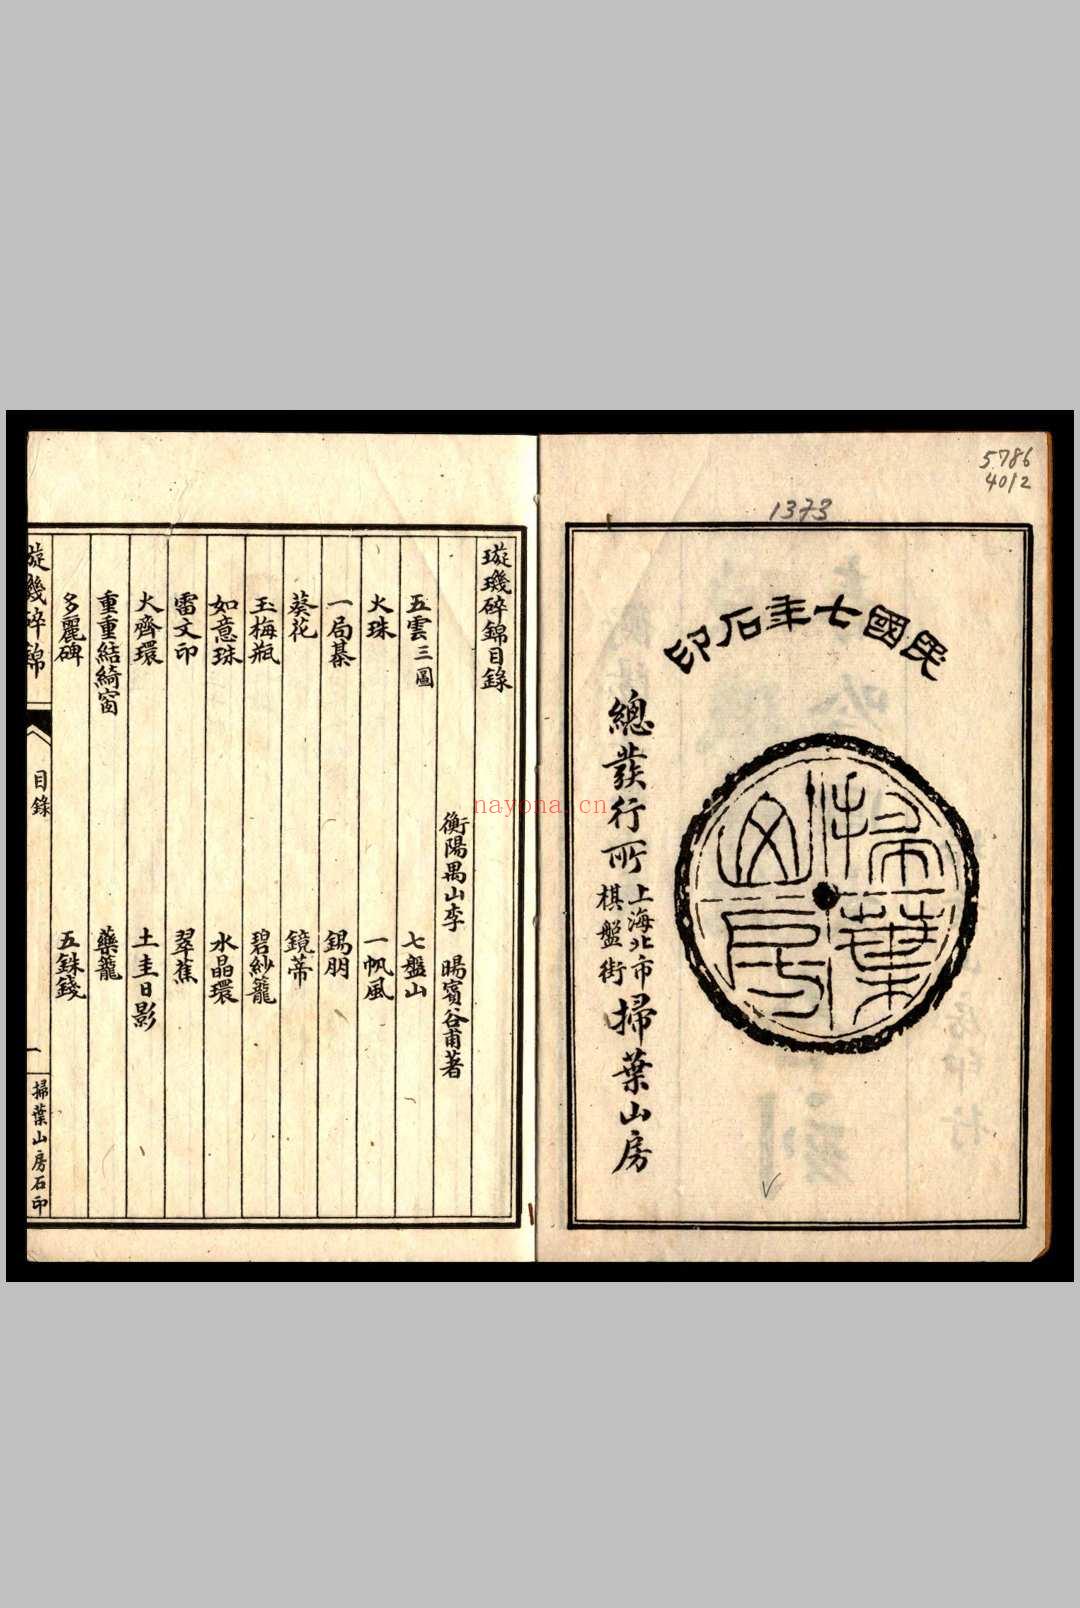 5786
4012
1373
民國七年石印
掃葉山房
總發行所
上海北市
棋盤街
掃葉山房
璇璣碎錦目錄
衡陽禺山李　暘賓谷甫著
五雲三圖　七盤山
火珠　一帆風
一局棊　錫朋
葵花　鏡蒂
玉梅瓶　碧紗籠
如意珠　水晶環
雷文印　翠蕉
火齊環　土圭日影
重重結綺窗　藥籠
多麗碑　五銖錢
璇璣碎錦　目錄　一　掃葉山房石印
nayona.cn